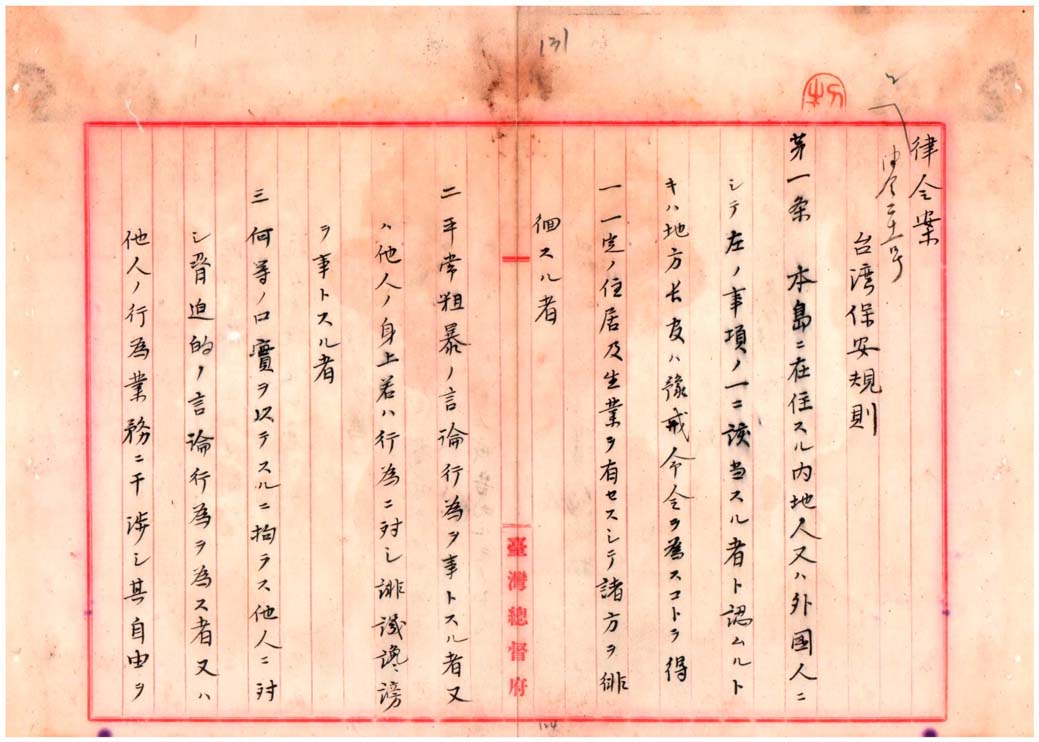 131
律令案
台湾保安規則
第一条 本島ニ在住スル内地人又ハ外国人ニ
シテ左ノ事項ノ一ニ該当スル者ト認ムルト
キハ地方長官ハ豫戒命令ヲ為スコトヲ得
一 一定ノ住居及生業ヲ有セスシテ諸方ヲ徘
徊スル者
臺灣總督府
二 平常粗暴ノ言論行為ヲ事トスル者又
ハ他人ノ身上若ハ行為ニ対シ誹譏讒謗
ヲ事トスル者
三 何等ノ口實ヲ以テスルニ拘ラス他人ニ対
シ脅迫的ノ言論行為ヲ為ス者又ハ
他人ノ行為業務ニ干渉シ其自由ヲ
124